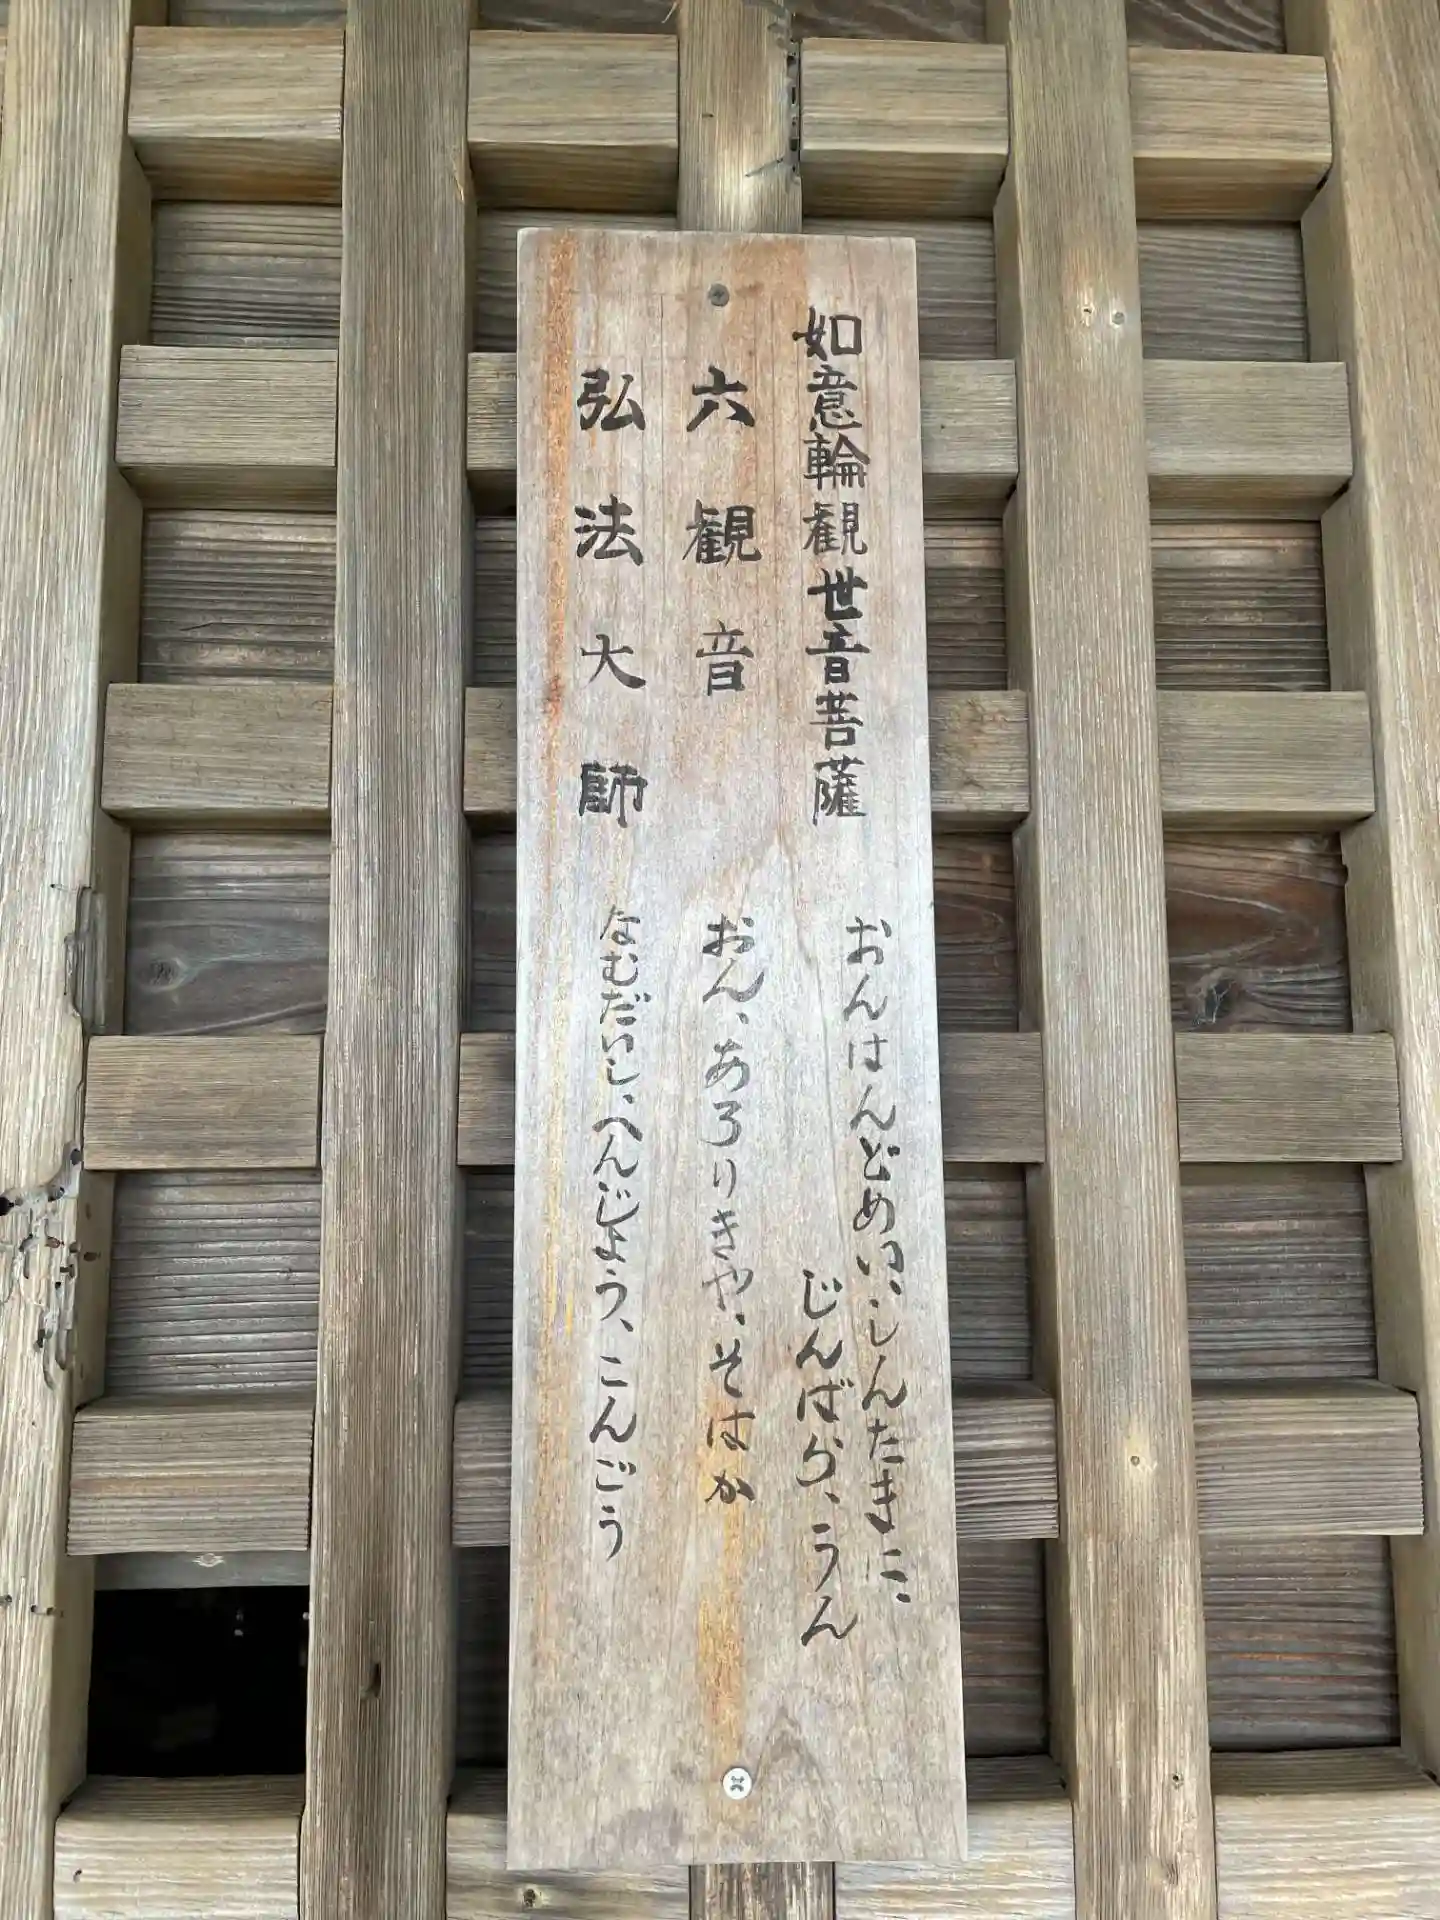 如意輪観世音菩薩 おんはんどめい、しんたまに、
じんばら、うん
六観音 おん、あろりきや、そはか
弘法大師 なむだいし、へんじょう、こんごう